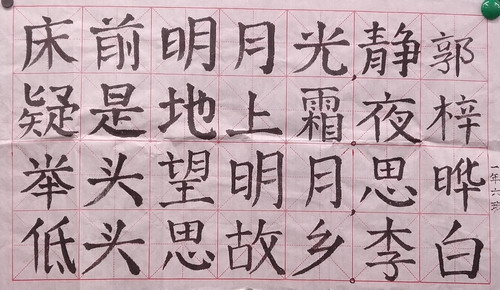 床前明月光静郭
疑是地上霜夜梓
举头望明月思晔
低头思故乡李白
年六班